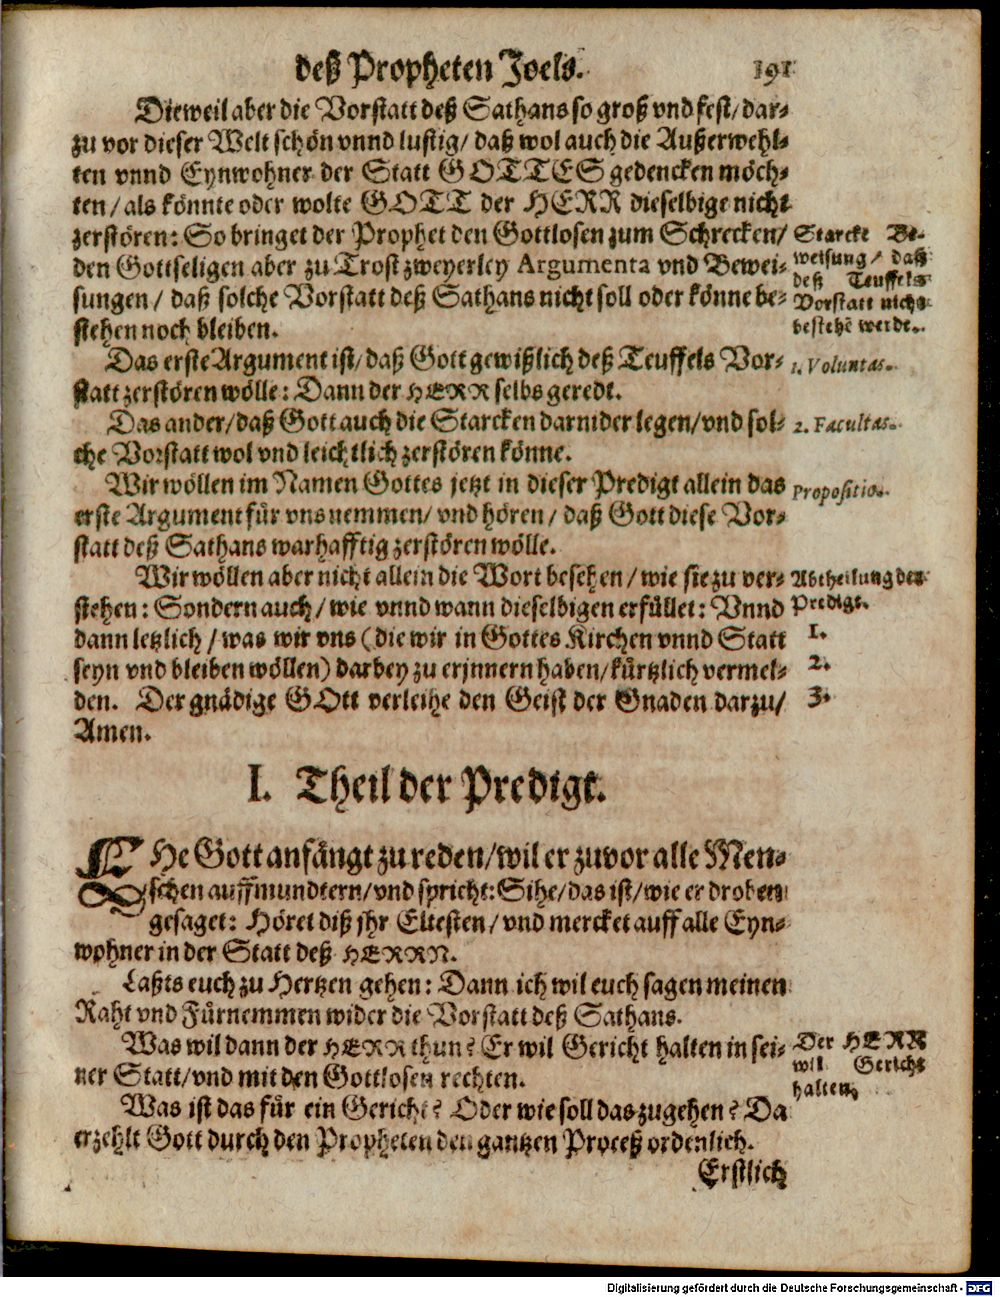 deß Propheten Joels. 191
Dieweil aber die Vorstatt deß Sathans so groß vnd fest/ dar-
zu vor dieser Welt schön vnnd lustig/ daß wol auch die Außerwehl-
ten vnnd Eynwohner der Statt GOTTES gedencken möch-
ten/ als könnte oder wolte GOTT der HERR dieselbige nicht
zerstören: So bringet der Prophet den Gottlosen zum Schrecken/
den Gottseligen aber zu Trost zweyerley Argumenta vnd Bewei-
sungen/ daß solche Vorstatt deß Sathans nicht soll oder könne be-
stehen noch bleiben.
Starcke Be-
weisung/ daß
deß Teuffels
Vorstatt nicht
bestehē werde.
Das erste Argument ist/ daß Gott gewißlich deß Teuffels Vor-
statt zerstören wölle: Dann der HERR selbs geredt.
1. Voluntas.
Das ander/ daß Gott auch die Starcken darnider legen/ vnd sol-
che Vorstatt wol vnd leichtlich zerstören könne.
2. Facultas.
Wir wöllen im Namen Gottes jetzt in dieser Predigt allein das
erste Argument für vns nemmen/ vnd hören/ daß Gott diese Vor-
statt deß Sathans warhafftig zerstören wölle.
Propositio.
Wir wöllen aber nicht allein die Wort besehen/ wie sie zu ver-
stehen: Sondern auch/ wie vnnd wann dieselbigen erfüllet: Vnnd
dann letzlich/ was wir vns (die wir in Gottes Kirchen vnnd Statt
seyn vnd bleiben wöllen) darbey zu erjnnern haben/ kürtzlich vermel-
den. Der gnädige GOtt verleihe den Geist der Gnaden darzu/
Amen.
Abtheilung der
Predigt.
1.
2.
3.
I. Theil der Predigt.
EHe Gott anfängt zu reden/ wil er zuvor alle Men-
schen auffmundtern/ vnd spricht: Sihe/ das ist/ wie er droben
gesaget: Höret diß jhr Eltesten/ vnd mercket auff alle Eyn-
wohner in der Statt deß HERRN.
Laßts euch zu Hertzen gehen: Dann ich wil euch sagen meinen
Raht vnd Fürnemmen wider die Vorstatt deß Sathans.
Was wil dann der HERR thun? Er wil Gericht halten in sei-
ner Statt/ vnd mit den Gottlosen rechten.
Der HERR
wil Gericht
halten.
Was ist das für ein Gericht? Oder wie soll das zugehen? Da
erzehlt Gott durch den Propheten den gantzen Proceß ordenlich.
Erstlich
Digitalisierung gefördert durch die Deutsche Forschungsgemeinschaft - DFG